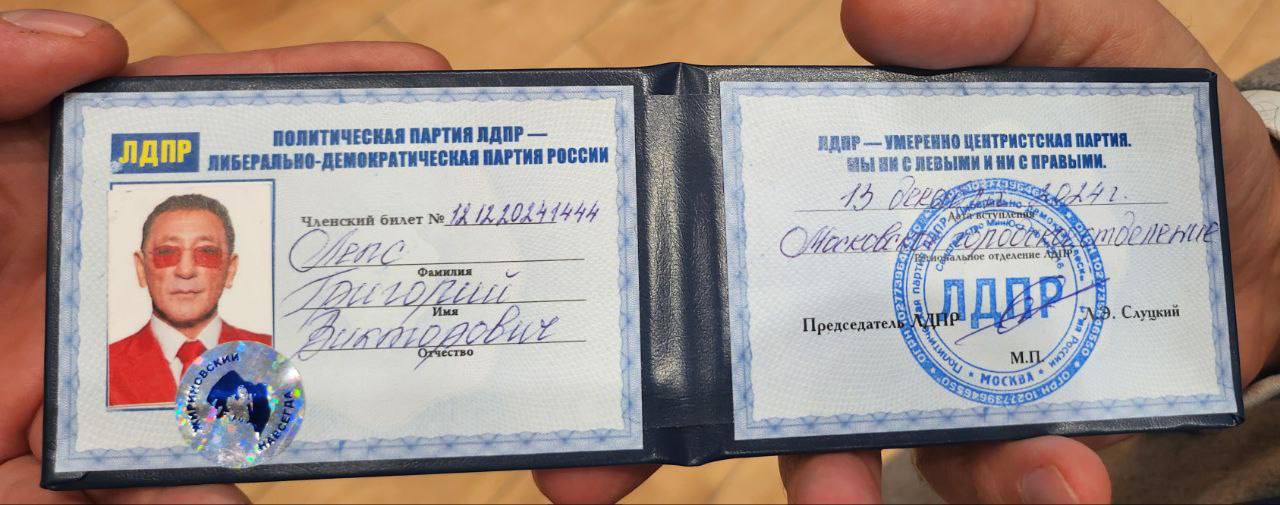 ЛДПР
ПОЛИТИЧЕСКАЯ ПАРТИЯ ЛДПР —
ЛИБЕРАЛЬНО-ДЕМОКРАТИЧЕСКАЯ ПАРТИЯ РОССИИ
Членский билет № 121220241444
Лепс
Фамилия
Григорий
Имя
Викторович
Отчество
ЖИРИНОВСКИЙ
НАВСЕГДА
ЛДПР — УМЕРЕННО ЦЕНТРИСТСКАЯ ПАРТИЯ.
МЫ НИ С ЛЕВЫМИ И НИ С ПРАВЫМИ.
13 декабря 2024г.
Дата вступления
Московское городское отделение
Региональное отделение ЛДПР
ЛДПР
Председатель ЛДПР
Л.Э. Слуцкий
М.П.
Политическая партия ЛДПР
МОСКВА
ОГРН 1027739646550